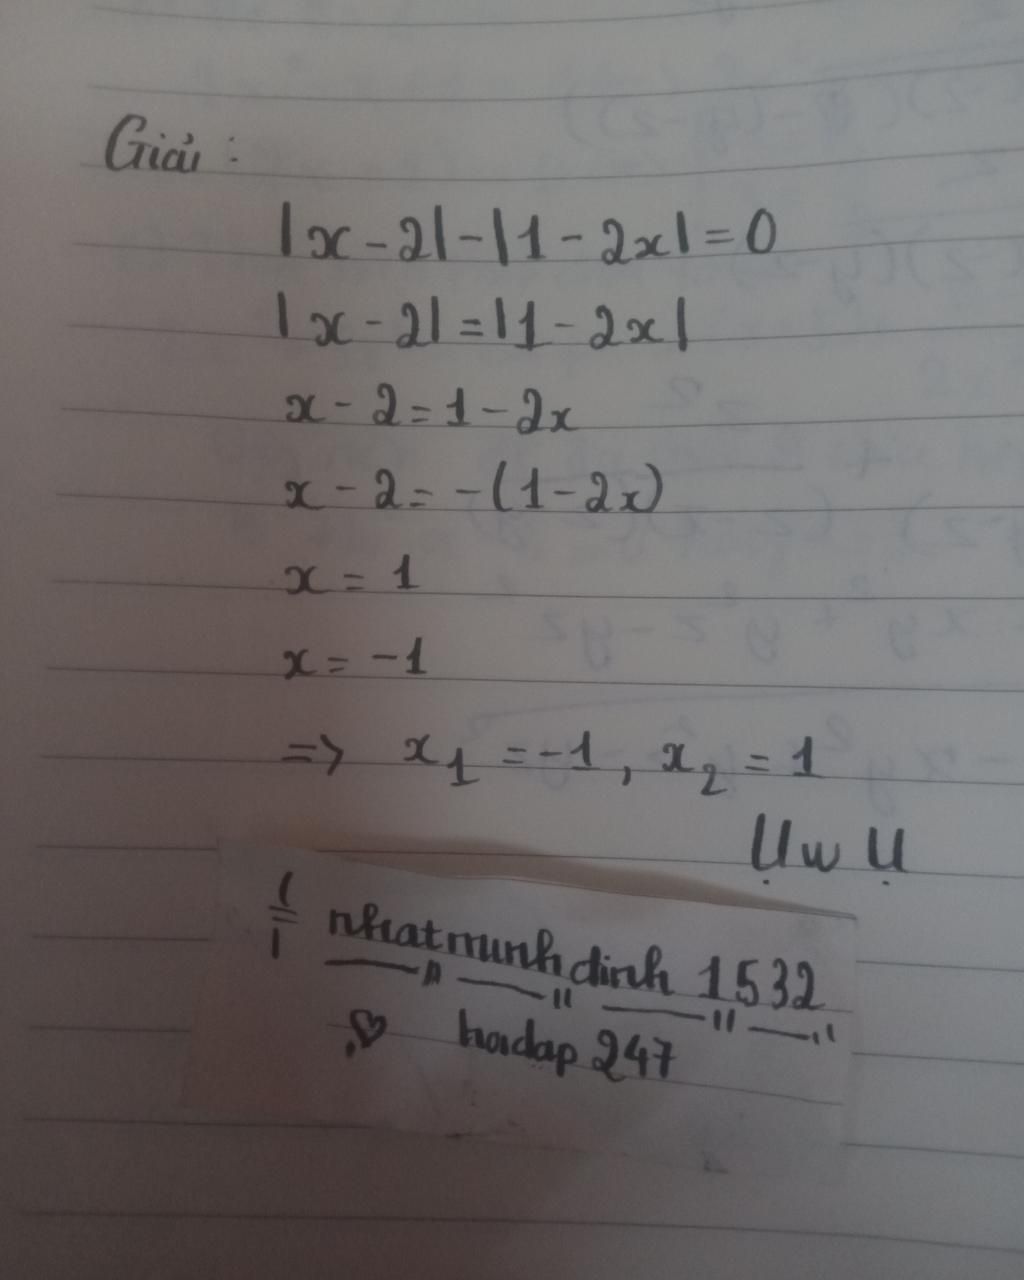 Giải :
|x - 2| - |1 - 2x| = 0
|x - 2| = |1 - 2x|
x - 2 = 1 - 2x
x - 2 = - (1 - 2x)
x = 1
x = -1
=> x₁ = -1, x₂ = 1
UwU
nhatminhdinh 1532
hoidap 247